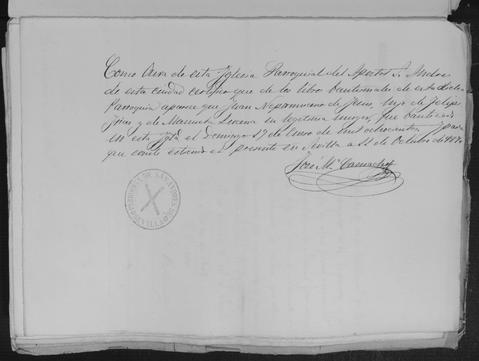 Como Cura de esta Yglesia Parroquial del Apostol S. Andres
de esta ciudad certifico que de los libros Bautismales de esta dicha
Parroquia aparece que Juan Nepomuceno de hijo de Felipe
y de Manuela Lucena su legitima muger, fue bautizado
en esta Ygla. el Domingo 17 de Enero de mil ochocientos y para
que conste extiendo el presente en Sevilla a 22 de Octubre de
José Mª
PARROQUIA DE SAN ANDRES DE SEVILLA